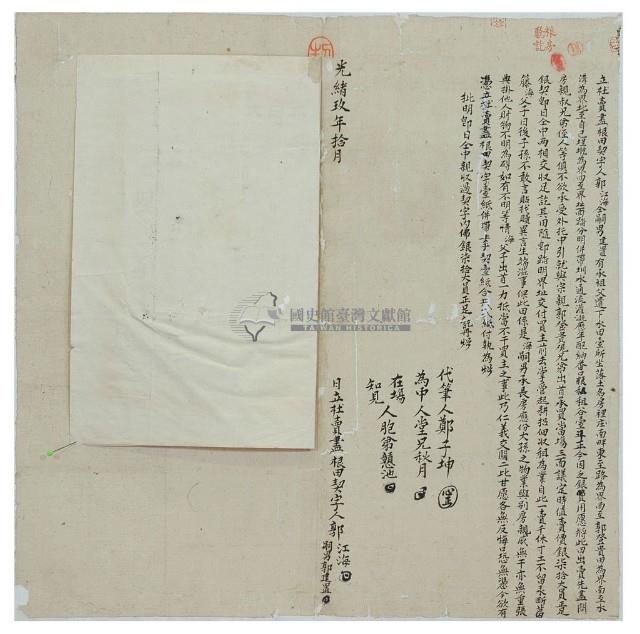 立杜賣盡根田契字人郭江海仝嗣男建置有承祖父遺下水田壹所坐落土為房裡庄南畔東至路為界西至郭登貴田為界南至水
溝為界北至自己埋墘為界四至界址面踏分明併帶圳水通流灌溉應年配納番口糧租粟谷壹斗正今因乏銀費用愿將此田出賣先盡問
房親叔兄弟侄人等俱不欲承受外托中引就與宗親郭登貴硯兄弟出首承買當場三面議定時值賣價銀柒拾大員足
銀契即日仝中兩相交收足訖其田隨即踏明界址交付買主前去掌管起耕招佃收租為業自此一賣千休寸土不留永斷葛
藤海父子日後子孫不敢言貼找贖異言生端滋事保此田係是海嗣男承長房應份大孫之物業與別房親戚無干亦無重張
典掛他人財物不明為碍如有不明等情海父子出首一力抵當不干買主之事此乃仁義交關二比甘愿各無反悔口恐無憑今欲有
憑立杜賣盡根田契字壹紙併帶上手契壹紙合共貳紙付執為炤
批明即日仝中親收過契字內佛銀柒拾大員正足訖再炤
代筆人鄭子坤
為中人堂兄秋月
在場
知見人胞弟慧池
光緒玖年拾月
日立杜賣盡根田契字人郭江海
嗣男郭建置
國史館臺灣文獻館
TAIWAN HISTORICA